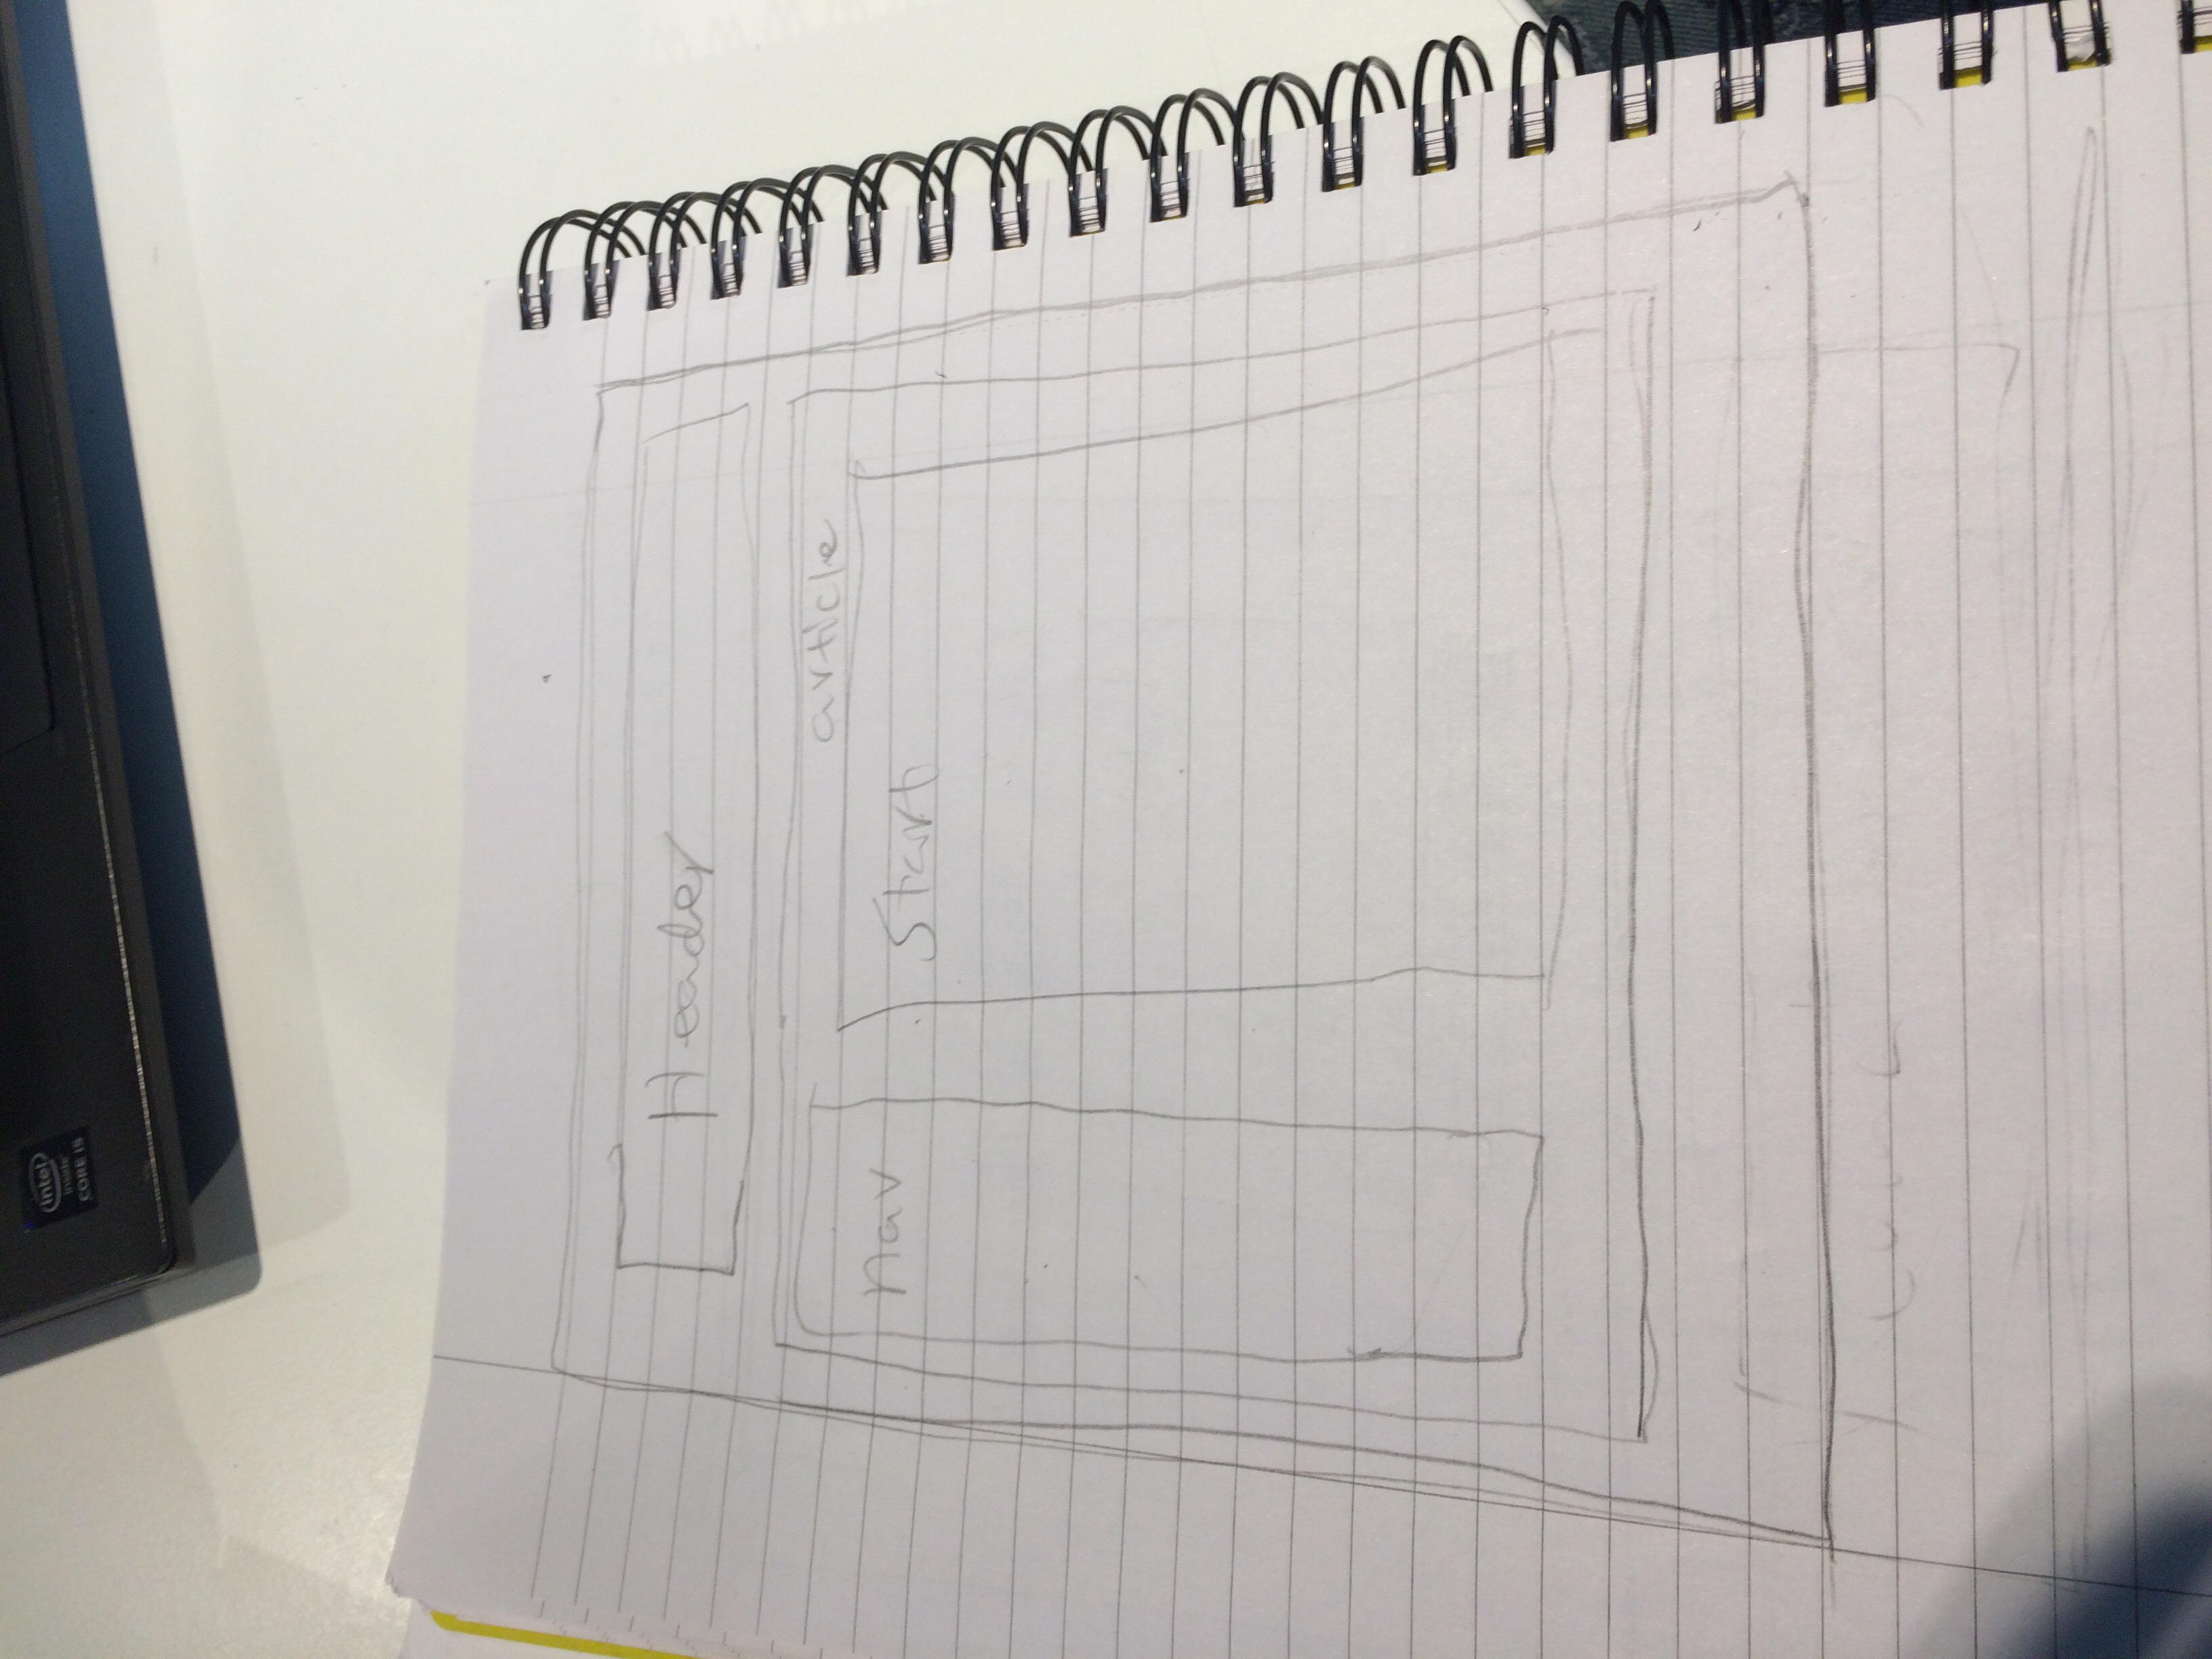 intel
inside
CORE i5
Header
article
nav
Start